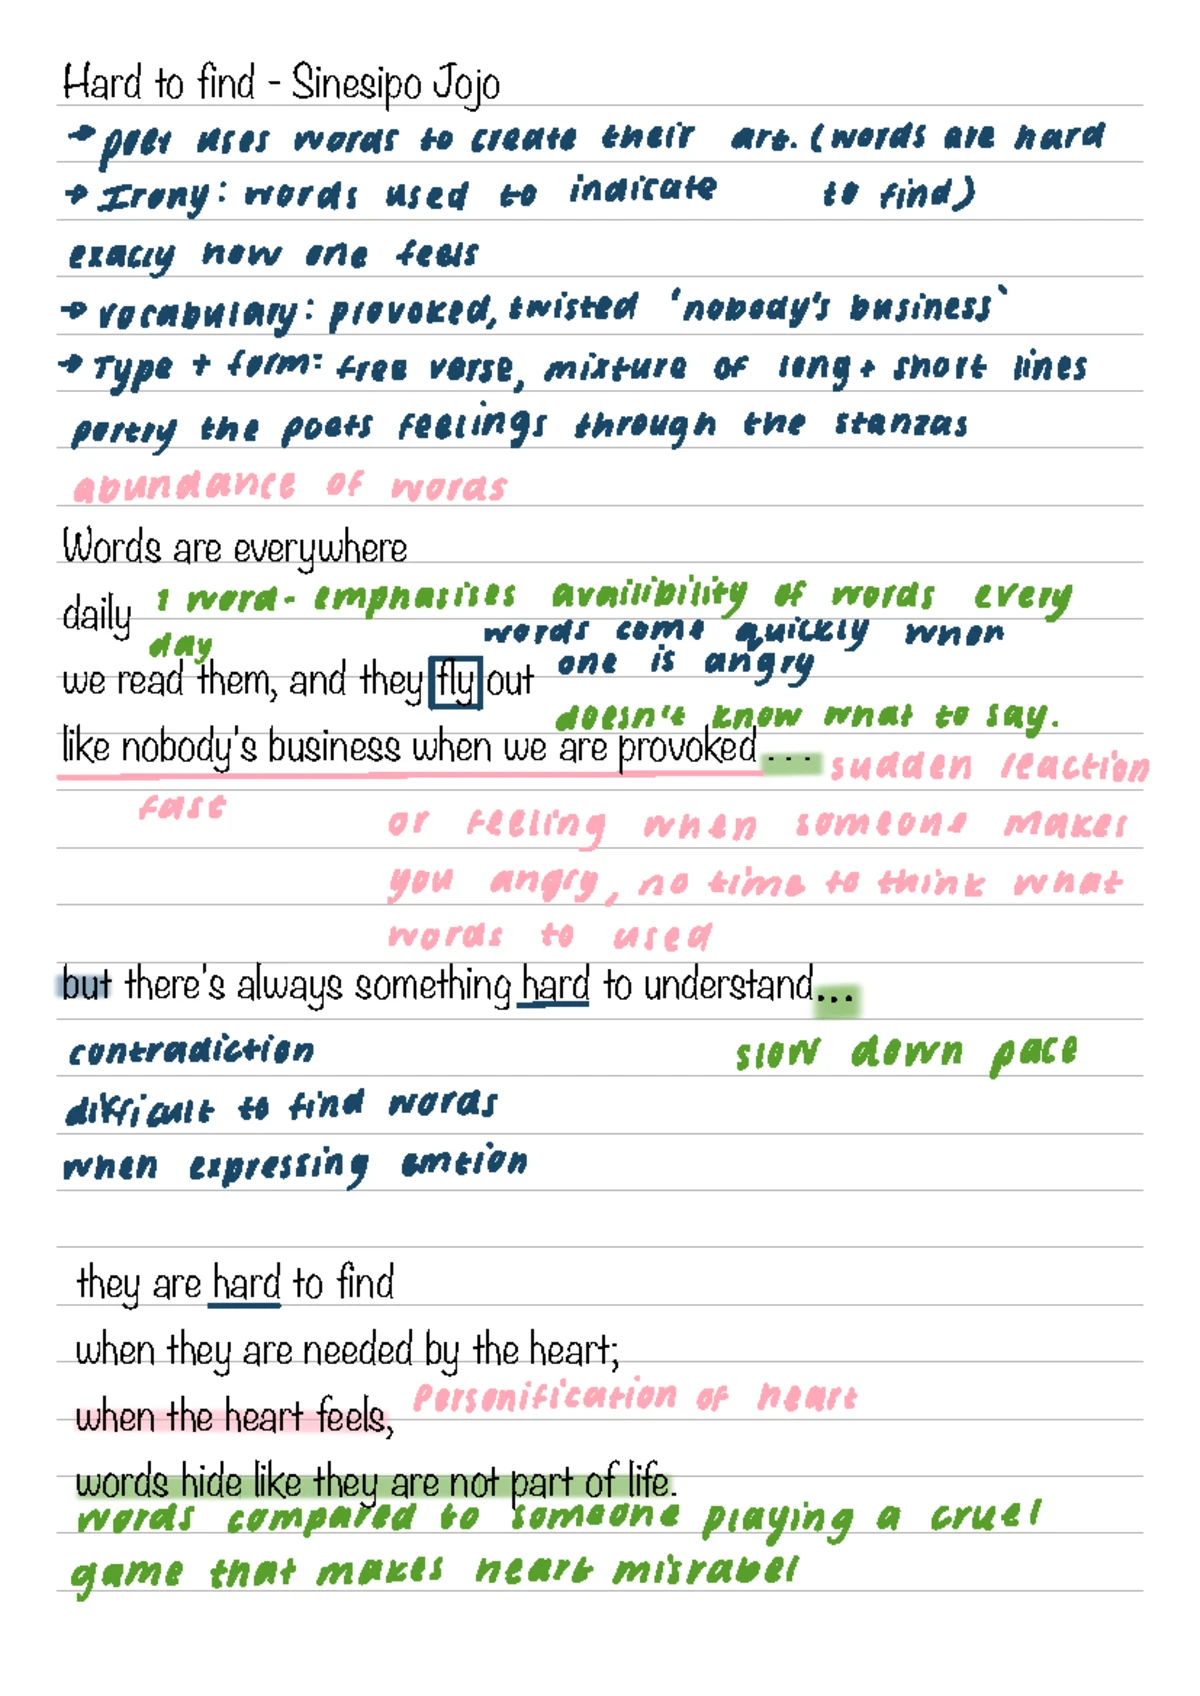 Hard to find - Sinesipo Jojo
→ poet uses words to create their art. (words are hard
→ Irony: words used to indicate to find)
exacly how one feels
→ vocabulary: provoked, twisted 'nobody's business'
→ Type + form: free verse, mixture of long + short lines
portry the poets feelings through the stanzas
abundance of words
Words are everywhere
daily 1 word - emphasises availibility of words every
day
words come quickly when
we read them, and they fly out one is angry
doesn't know what to say.
like nobody's business when we are provoked... sudden reaction
fast or feeling when someone makes
you angry, no time to think what
words to used
but there's always something hard to understand...
contradiction slow down pace
difficult to find words
when expressing emtion
they are hard to find
when they are needed by the heart;
when the heart feels, Personification of heart
words hide like they are not part of life.
words compared to someone playing a cruel
game that makes heart misrabel